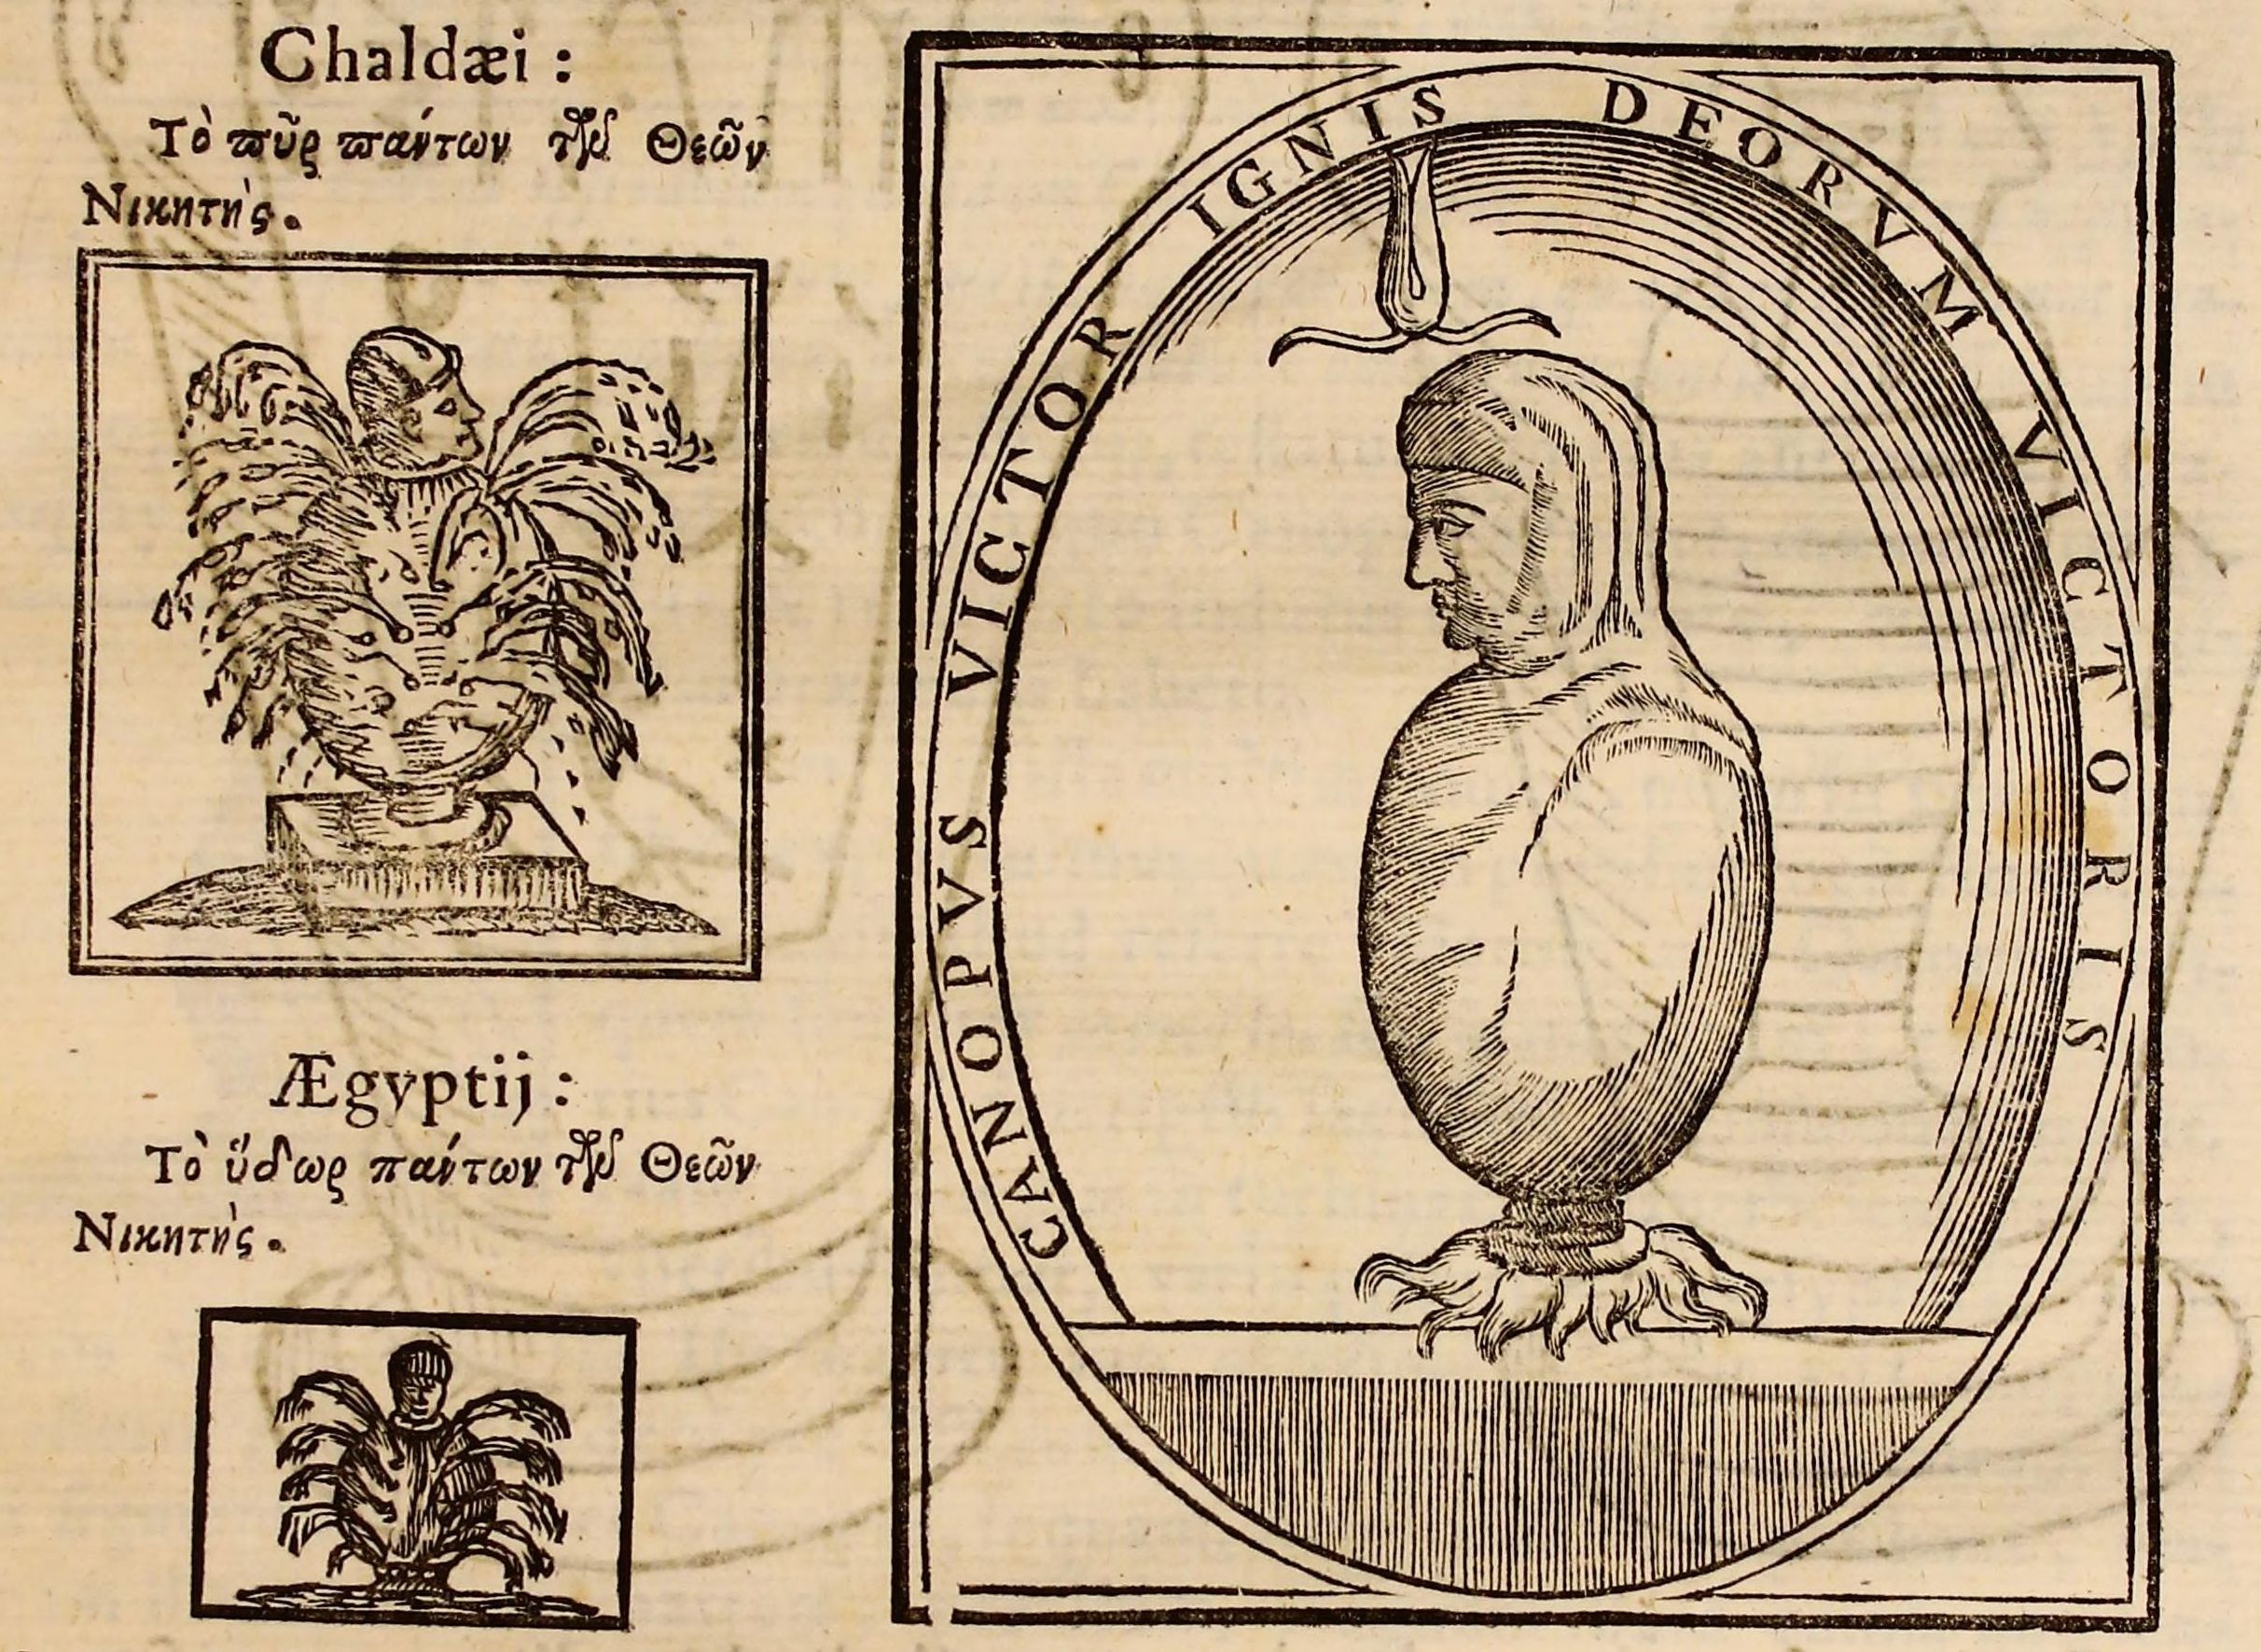 Chaldæi :
Τὸ πῦρ πάντων τῶν Θεῶν
Νικητὴς.
Ægyptij :
Τὸ ὕδωρ πάντων τῶν Θεῶν
Νικητὴς.
CANOPVS VICTOR IGNIS DEORVM VICTORIS